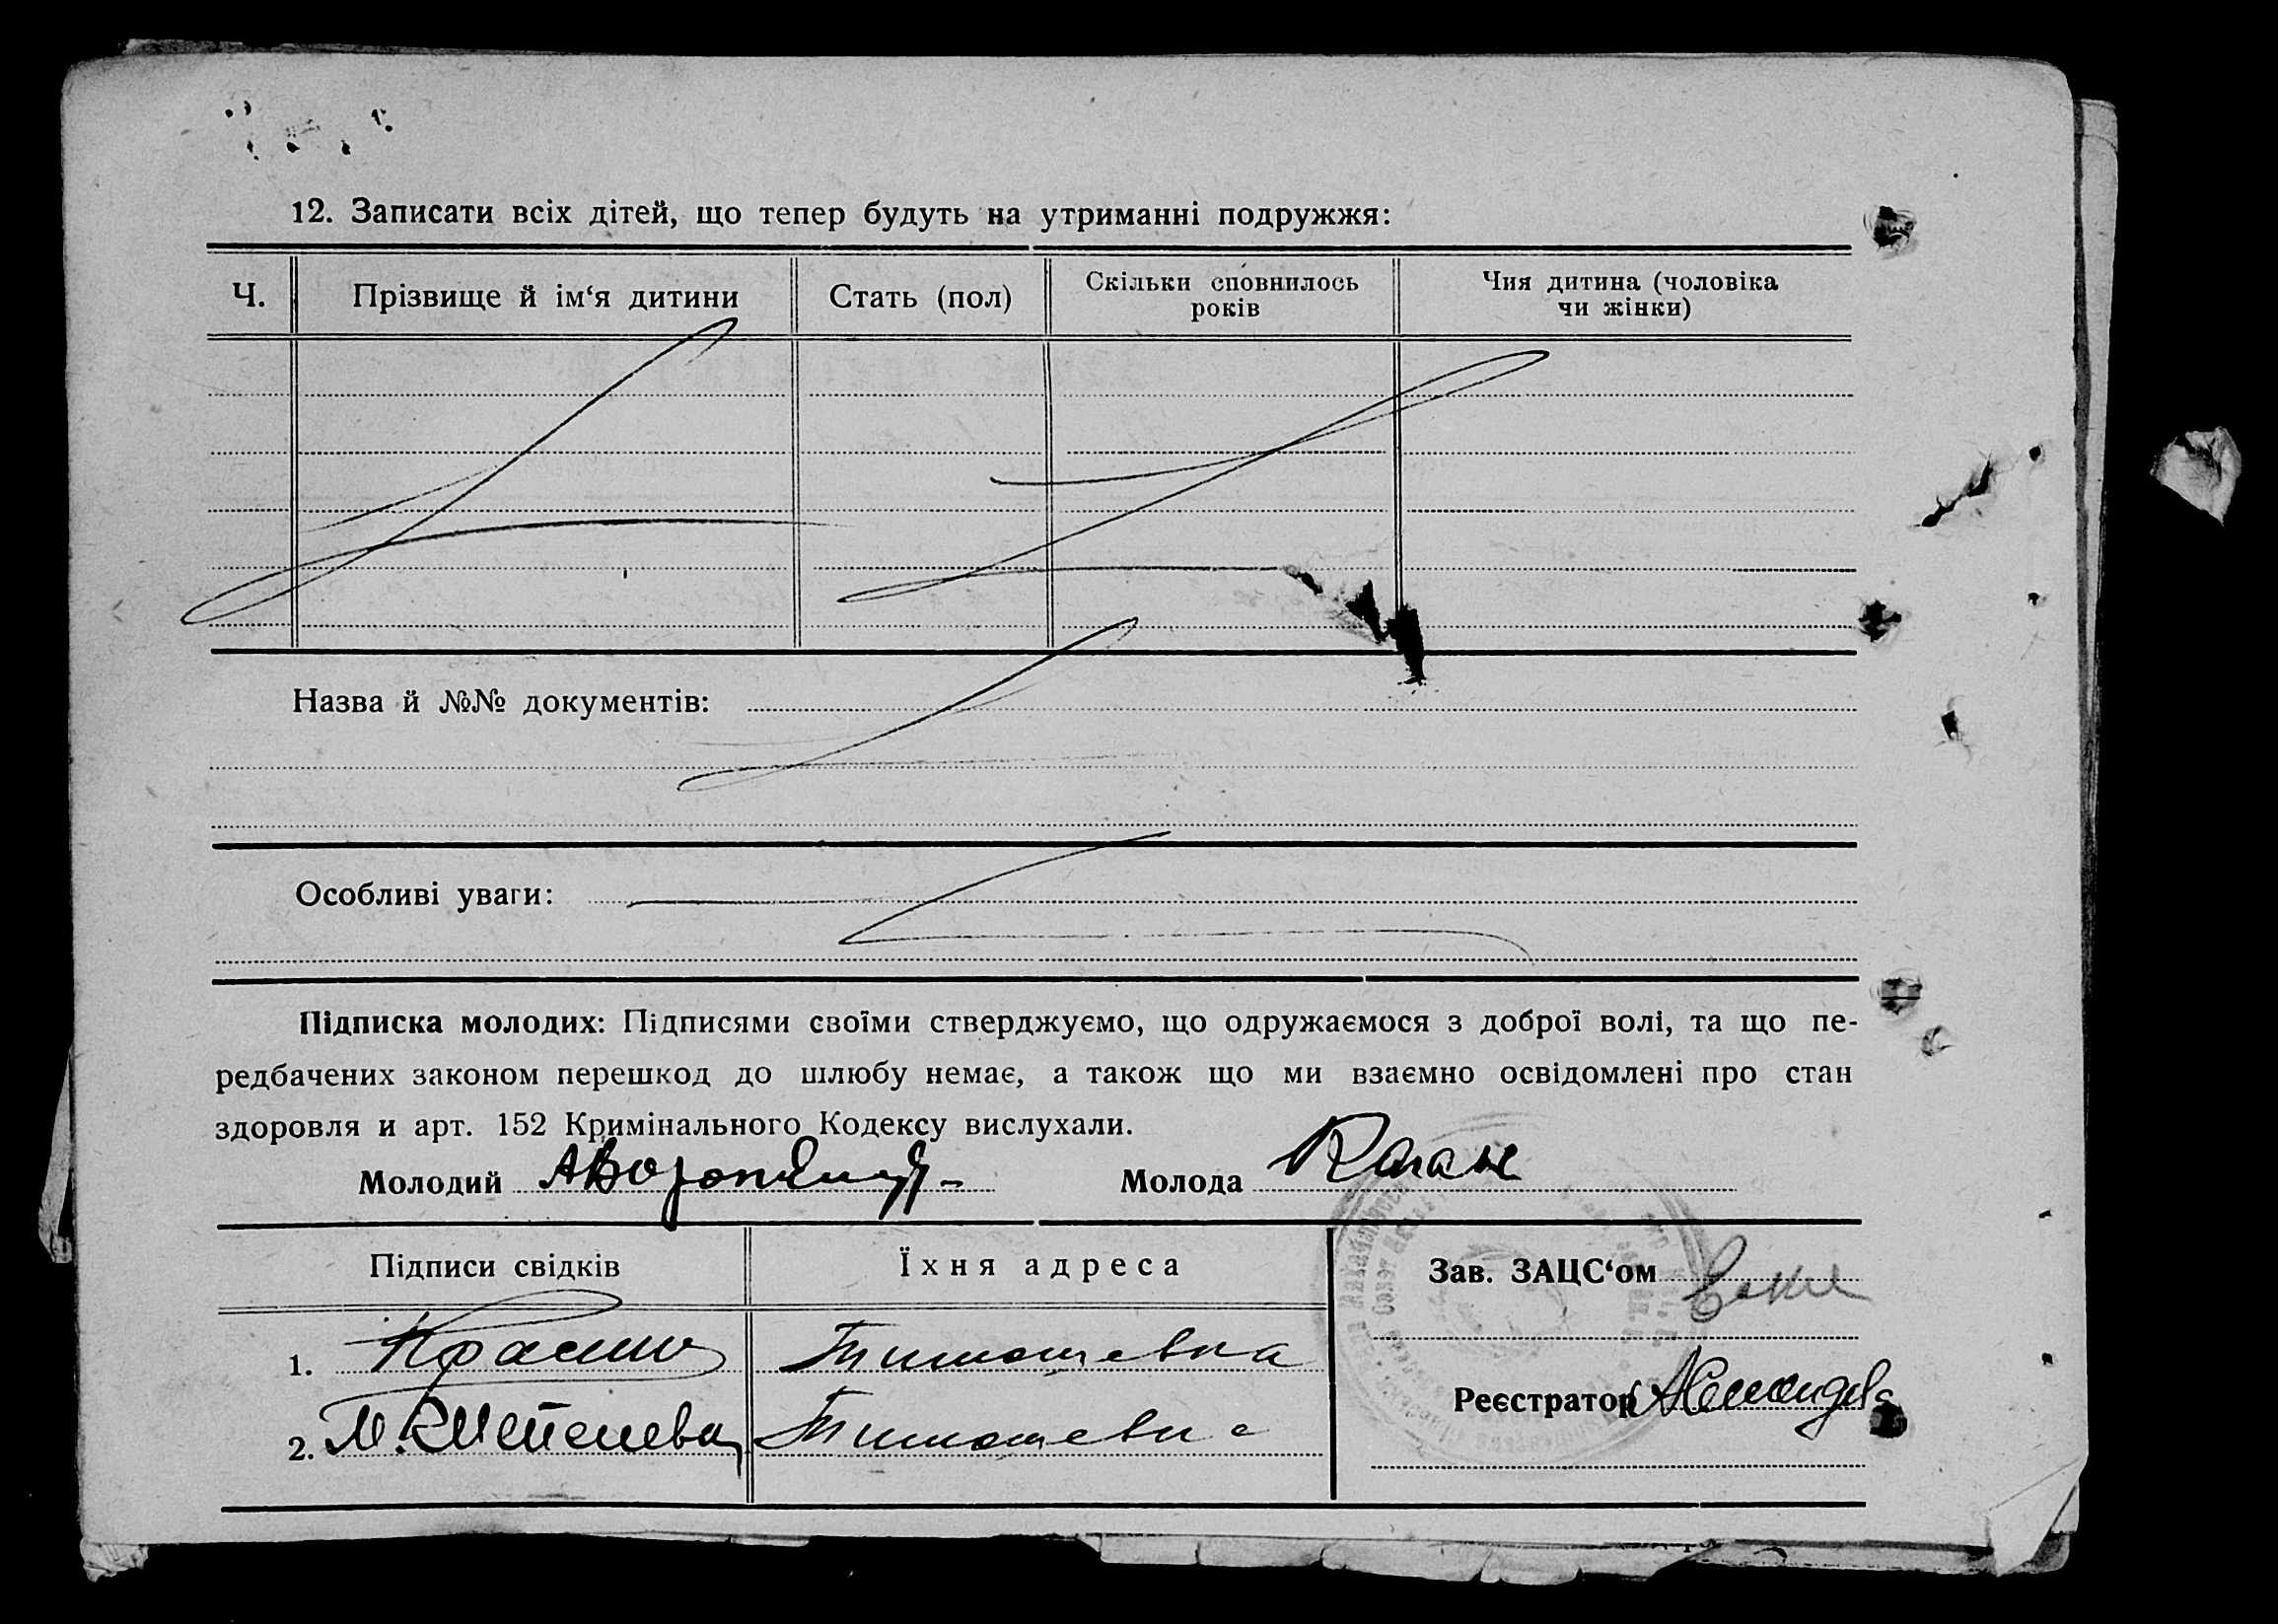 12. Записати всіх дітей, що тепер будуть на утриманні подружжя:
Ч.
Прізвище й ім‘я дитини
Стать (пол)
Скільки сповнилось
років
Чия дитина (чоловіка
чи жінки)
Назва й №№ документів:
Особливі уваги:
Підписка молодих: Підписями своїми стверджуємо, що одружаємося з доброї волі, та що пе-
редбачених законом перешкод до шлюбу немає, а також що ми взаємно освідомлені про стан
здоровля и арт. 152 Кримінального Кодексу вислухали.
Молодий
Молода Каган
Підписи свідків
Їхня адреса
Зав. ЗАЦС‘ом
1. Тимошевка
2. Тимошевка
Реєстратор